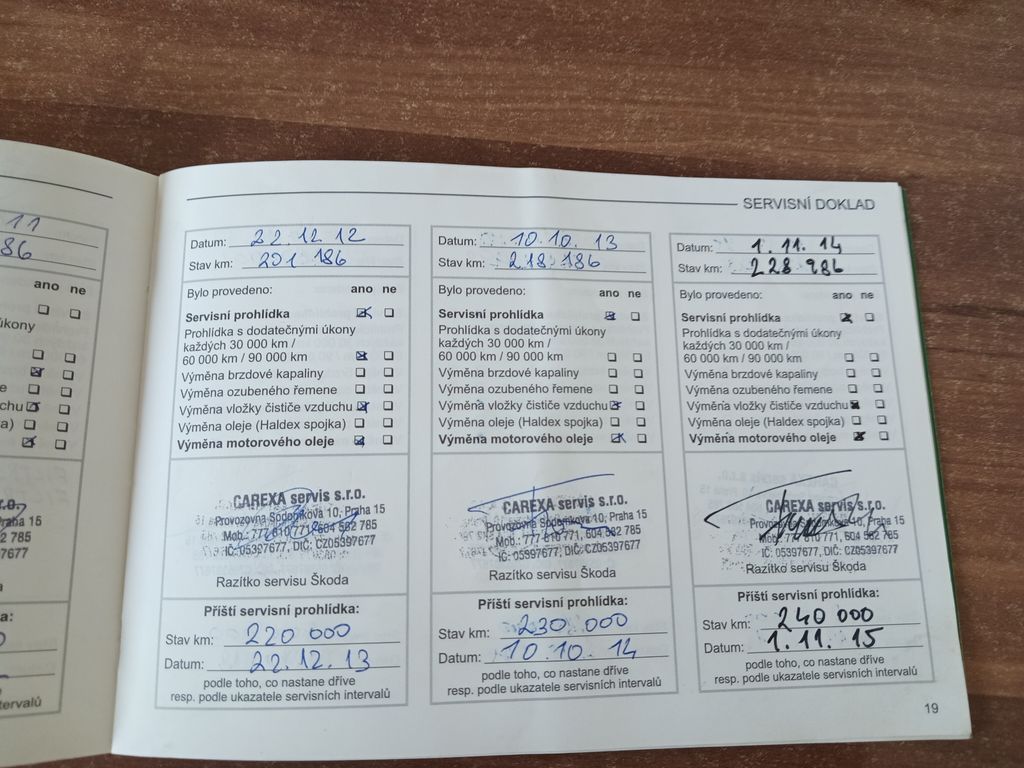 11
86
ano ne
úkony
e
zduchu
a)
r.o.
Praha 15
582 785
7677
a:
ne
tervalů
SERVISNÍ DOKLAD
Datum: 22.12.12
Stav km: 201 186
Bylo provedeno: ano ne
Servisní prohlídka
Prohlídka s dodatečnými úkony
každých 30 000 km /
60 000 km / 90 000 km
Výměna brzdové kapaliny
Výměna ozubeného řemene
Výměna vložky čističe vzduchu
Výměna oleje (Haldex spojka)
Výměna motorového oleje
CAREXA servis s.r.o.
Provozovna Sodomkova 10, Praha 15
Mob.: 777 810 771, 604 582 785
IČ: 05397677, DIČ: CZ05397677
Razítko servisu Škoda
Příští servisní prohlídka:
Stav km: 220 000
Datum: 22.12.13
podle toho, co nastane dříve
resp. podle ukazatele servisních intervalů
Datum: 10.10.13
Stav km: 218 186
Bylo provedeno: ano ne
Servisní prohlídka
Prohlídka s dodatečnými úkony
každých 30 000 km /
60 000 km / 90 000 km
Výměna brzdové kapaliny
Výměna ozubeného řemene
Výměna vložky čističe vzduchu
Výměna oleje (Haldex spojka)
Výměna motorového oleje
CAREXA servis s.r.o.
Provozovna Sodomkova 10, Praha 15
Mob.: 777 810 771, 604 582 785
IČ: 05397677, DIČ: CZ05397677
Razítko servisu Škoda
Příští servisní prohlídka:
Stav km: 230 000
Datum: 10.10.14
podle toho, co nastane dříve
resp. podle ukazatele servisních intervalů
Datum: 1.11.14
Stav km: 228 986
Bylo provedeno: ano ne
Servisní prohlídka
Prohlídka s dodatečnými úkony
každých 30 000 km /
60 000 km / 90 000 km
Výměna brzdové kapaliny
Výměna ozubeného řemene
Výměna vložky čističe vzduchu
Výměna oleje (Haldex spojka)
Výměna motorového oleje
CAREXA servis s.r.o.
Provozovna Sodomkova 10, Praha 15
Mob.: 777 810 771, 604 582 785
IČ: 05397677, DIČ: CZ05397677
Razítko servisu Škoda
Příští servisní prohlídka:
Stav km: 240 000
Datum: 1.11.15
podle toho, co nastane dříve
resp. podle ukazatele servisních intervalů
19